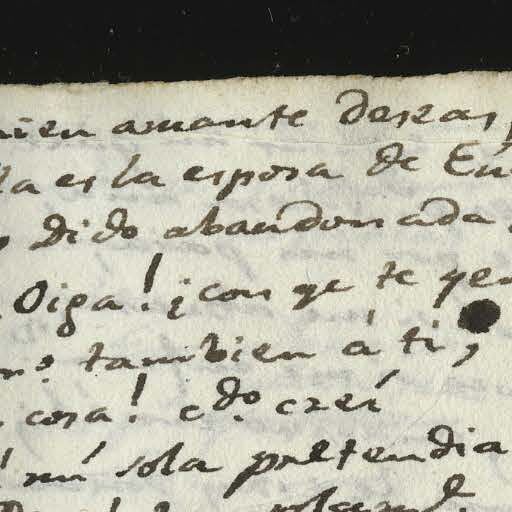 amante deseas
la es la esposa de
Dido abandonada
Oiga! ¿con qe te
tambien á ti,
cosa! cdo. creí
mí sola pretendia